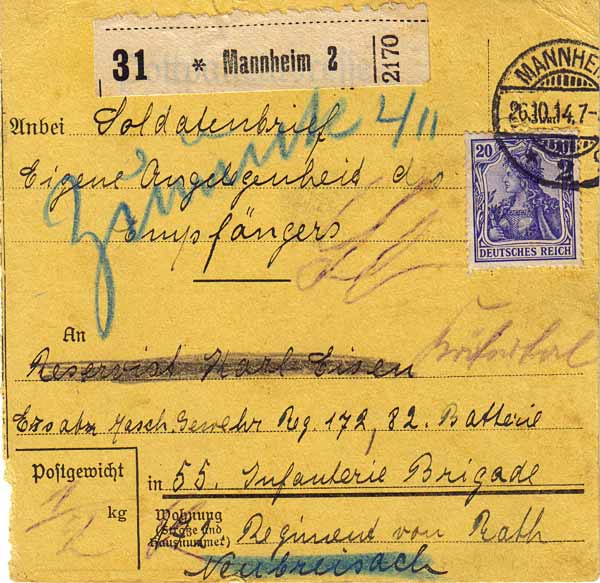 31 * Mannheim 2
2170
MANNHEIM
26.10.14.7-
2
Anbei Soldatenbrief
zurück 4/11
20
DEUTSCHES REICH
Eigene Angelegenheit des
Empfängers
An
Reservist Karl Eisen
Käfertal
Ersatz Masch. Gewehr Reg. 172, 82. Batterie
Postgewicht
in 55. Infanterie Brigade
1/2 kg
Wohnung
(Straße und
Hausnummer)
Regiment von Rath
Neubreisach